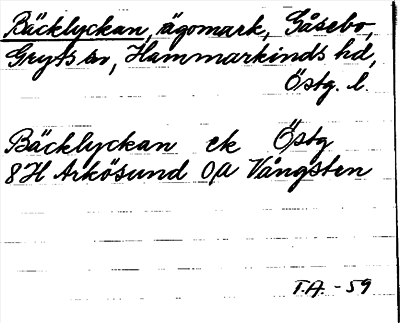 Bäcklyckan, ägomark, Gåsebo,
Gryts sn, Hammarkinds hd,
Östg. l.
Bäcklyckan ek Östg
8H Arkösund 0a Vångsten
T.A. - 59